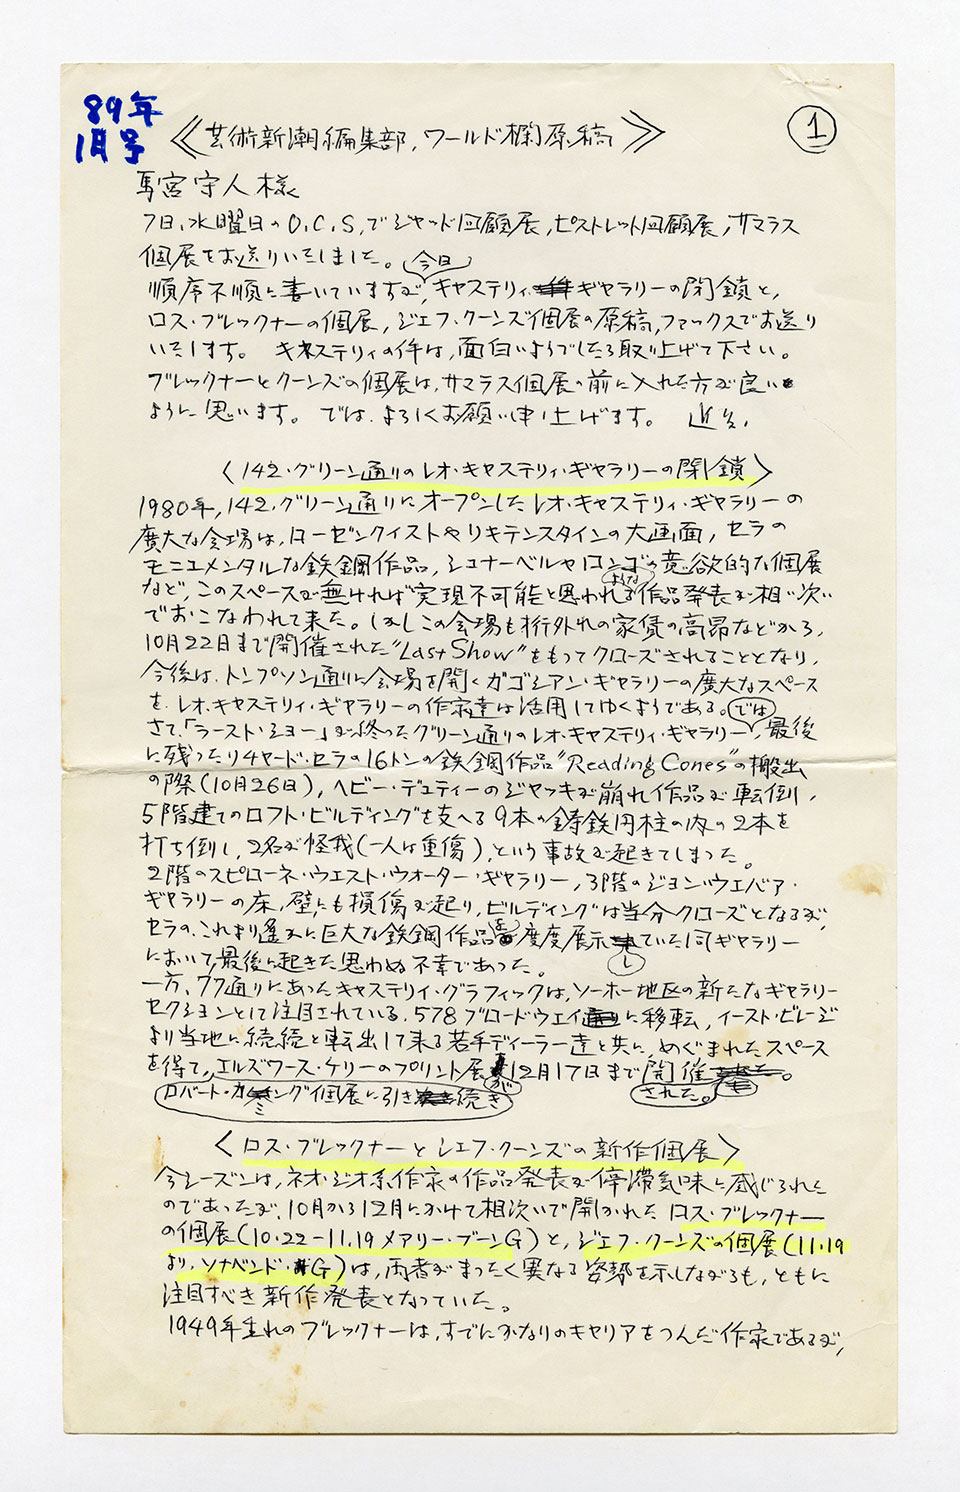 89年
1月号
《芸術新潮編集部，ワールド欄原稿》
①
馬宮守人様
7日，水曜日のO.C.S.でジャッド回顧展，ピストレット回顧展，サマラス
個展をお送りいたしました。
順序不順に書いていますが，今日キャステリィ・ギャラリーの閉鎖と，
ロス・ブレックナーの個展，ジェフ・クーンズ個展の原稿，ファックスでお送り
いたします。キャステリィの件は，面白いようでしたら取り上げて下さい。
ブレックナーとクーンズの個展は，サマラス個展の前に入れた方が良い
ように思います。では，よろしくお願い申し上げます。
〈142・グリーン通りのレオ・キャステリィ・ギャラリーの閉鎖〉
1980年，142，グリーン通りにオープンしたレオ・キャステリィ・ギャラリーの
廣大な会場は，ローゼンクイストやリキテンスタインの大画面，セラの
モニュメンタルな鉄鋼作品，シュナーベルやロンゴの意欲的な個展
など，このスペースが無ければ実現不可能と思われるような作品発表が相い次い
でおこなわれて来た。しかしこの会場も桁外れの家賃の高昂などから，
10月22日まで開催された"Last Show"をもってクローズされることとなり，
今後は，トンプソン通りに会場を開くガゴシアン・ギャラリーの廣大なスペース
を，レオ・キャステリィ・ギャラリーの作家達は活用してゆくようである。
さて，「ラースト・ショー」が終ったグリーン通りのレオ・キャステリィ・ギャラリーでは，最後
に残ったリチャード・セラの16トンの鉄鋼作品"Reading Cones"の搬出
の際(10月26日)，ヘビー・デュティーのジャッキが崩れ作品が転倒，
5階建てのロフト・ビルディングを支へる9本の鋳鉄円柱の内の2本を
打ち倒し，2名が怪我(一人は重傷)，という事故が起きてしまった。
2階のスピローネ・ウエスト・ウォーター・ギャラリー，3階のジョン・ウエバァ・
ギャラリーの床，壁にも損傷が起り，ビルディングは当分クローズとなるが，
セラの，これより遙かに巨大な鉄鋼作品を度度展示していた同ギャラリー
において，最後に起きた思わぬ不幸であった。
一方，77通りにあったキャステリィ・グラフィックは，ソーホー地区の新たなギャラリー
セクションとして注目されている，578ブロードウエイに移転，イースト・ビレージ
より当地に続続と転出して来る若手ディーラー達と共に，めぐまれたスペース
を得て，ロバート・カミング個展に引き続きエルズワース・ケリーのプリント展が12月17日まで開催された。
〈ロス・ブレックナーとジェフ・クーンズの新作個展〉
今シーズンは，ネオ・ジオ系作家の作品発表が停滞気味に感じられた
のであったが，10月から12月にかけて相次いで開かれたロス・ブレックナー
の個展(10.22－11.19メアリー・ブーンG)と，ジェフ・クーンズの個展(11.19
より，ソナベンド・G)は，両者がまったく異なる姿勢を示しながらも，ともに
注目すべき新作発表となっていた。
1949年生れのブレックナーは，すでにかなりのキャリアをつんだ作家であるが，